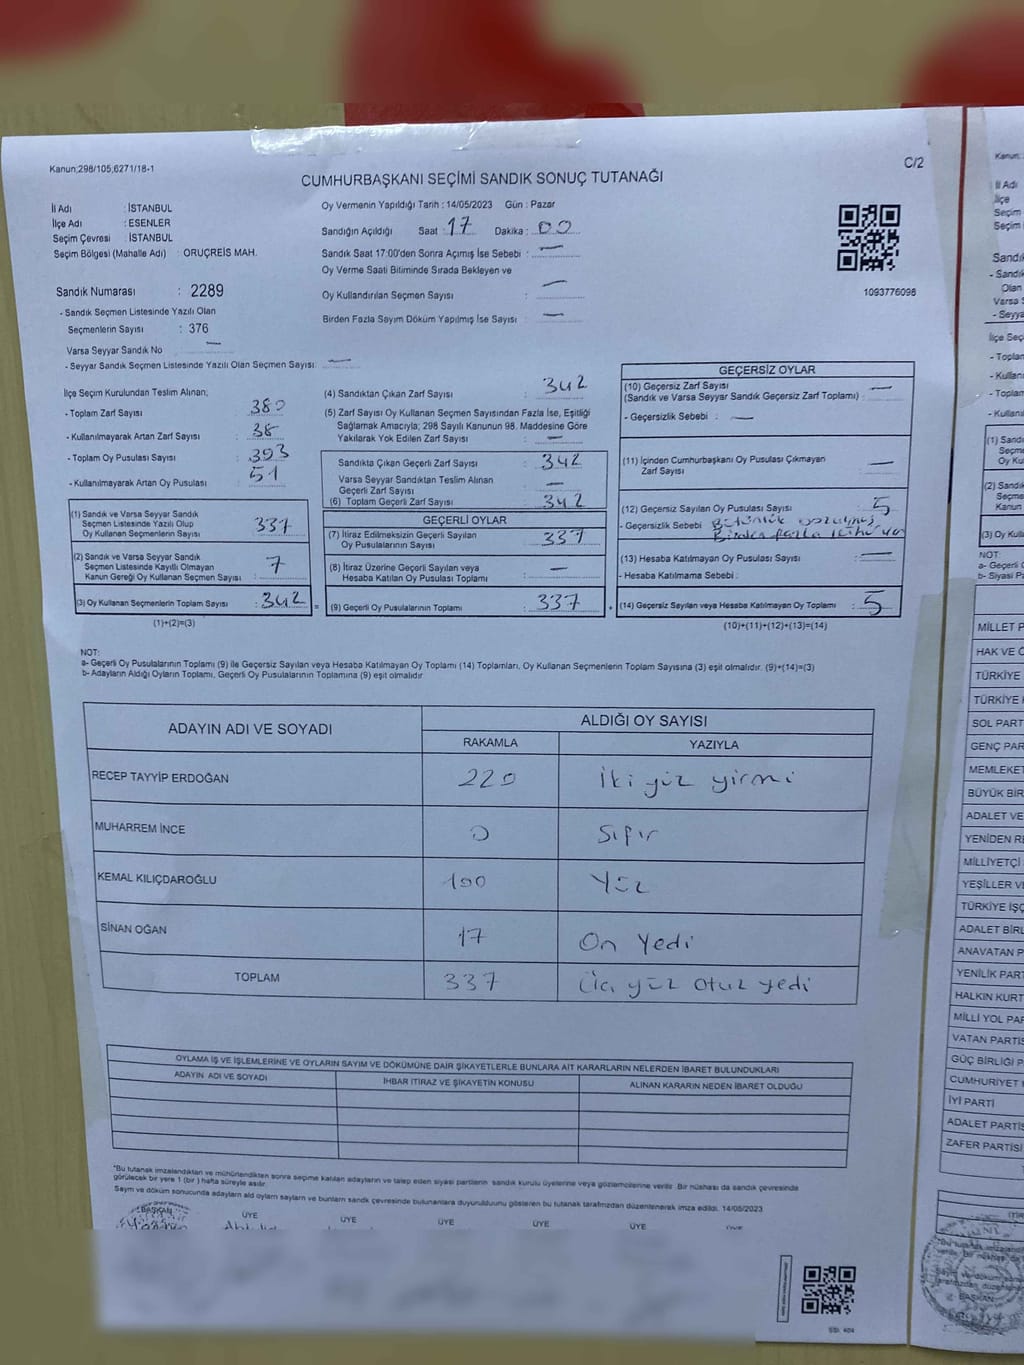 Kanun;298/105;6271/18-1
C/2
CUMHURBAŞKANI SEÇİMİ SANDIK SONUÇ TUTANAĞI
İl Adı : İSTANBUL
İlçe Adı : ESENLER
Seçim Çevresi : İSTANBUL
Seçim Bölgesi (Mahalle Adı) : ORUÇREİS MAH.
Sandık Numarası : 2289
- Sandık Seçmen Listesinde Yazılı Olan
Seçmenlerin Sayısı : 376
Varsa Seyyar Sandık No —
- Seyyar Sandık Seçmen Listesinde Yazılı Olan Seçmen Sayısı: —
Oy Vermenin Yapıldığı Tarih : 14/05/2023 Gün : Pazar
Sandığın Açıldığı Saat : 17 Dakika : 00
Sandık Saat 17:00'den Sonra Açımış İse Sebebi : —
Oy Verme Saati Bitiminde Sırada Bekleyen ve
Oy Kullandırılan Seçmen Sayısı : —
Birden Fazla Sayım Döküm Yapılmış İse Sayısı : —
1093776098
İlçe Seçim Kurulundan Teslim Alınan;
- Toplam Zarf Sayısı : 380
- Kullanılmayarak Artan Zarf Sayısı : 38
- Toplam Oy Pusulası Sayısı : 393
- Kullanılmayarak Artan Oy Pusulası : 51
(1) Sandık ve Varsa Seyyar Sandık
Seçmen Listesinde Yazılı Olup
Oy Kullanan Seçmenlerin Sayısı : 337
(2) Sandık ve Varsa Seyyar Sandık
Seçmen Listesinde Kayıtlı Olmayan
Kanun Gereği Oy Kullanan Seçmen Sayısı : 7
(3) Oy Kullanan Seçmenlerin Toplam Sayısı : 342 =
(1)+(2)=(3)
(4) Sandıktan Çıkan Zarf Sayısı : 342
(5) Zarf Sayısı Oy Kullanan Seçmen Sayısından Fazla İse, Eşitliği
Sağlamak Amacıyla; 298 Sayılı Kanunun 98. Maddesine Göre
Yakılarak Yok Edilen Zarf Sayısı : —
Sandıkta Çıkan Geçerli Zarf Sayısı : 342
Varsa Seyyar Sandıktan Teslim Alınan
Geçerli Zarf Sayısı : —
(6) Toplam Geçerli Zarf Sayısı : 342
GEÇERLİ OYLAR
(7) İtiraz Edilmeksizin Geçerli Sayılan
Oy Pusulalarının Sayısı : 337
(8) İtiraz Üzerine Geçerli Sayılan veya
Hesaba Katılan Oy Pusulası Toplamı : —
(9) Geçerli Oy Pusulalarının Toplamı : 337 +
GEÇERSİZ OYLAR
(10) Geçersiz Zarf Sayısı
(Sandık ve Varsa Seyyar Sandık Geçersiz Zarf Toplamı) : —
- Geçersizlik Sebebi : —
(11) İçinden Cumhurbaşkanı Oy Pusulası Çıkmayan
Zarf Sayısı : —
(12) Geçersiz Sayılan Oy Pusulası Sayısı : 5
- Geçersizlik Sebebi : Bütünlük bozulmuş
Birden fazla
(13) Hesaba Katılmayan Oy Pusulası Sayısı : —
- Hesaba Katılmama Sebebi :
(14) Geçersiz Sayılan veya Hesaba Katılmayan Oy Toplamı : 5
(10)+(11)+(12)+(13)=(14)
NOT:
a- Geçerli Oy Pusulalarının Toplamı (9) ile Geçersiz Sayılan veya Hesaba Katılmayan Oy Toplamı (14) Toplamları, Oy Kullanan Seçmenlerin Toplam Sayısına (3) eşit olmalıdır. (9)+(14)=(3)
b- Adayların Aldığı Oyların Toplamı, Geçerli Oy Pusulalarının Toplamına (9) eşit olmalıdır
ADAYIN ADI VE SOYADI
ALDIĞI OY SAYISI
RAKAMLA YAZIYLA
RECEP TAYYİP ERDOĞAN 220 İki yüz yirmi
MUHARREM İNCE 0 Sıfır
KEMAL KILIÇDAROĞLU 100 Yüz
SİNAN OĞAN 17 On Yedi
TOPLAM 337 Üç yüz otuz yedi
OYLAMA İŞ VE İŞLEMLERİNE VE OYLARIN SAYIM VE DÖKÜMÜNE DAİR ŞİKAYETLERLE BUNLARA AİT KARARLARIN NELERDEN İBARET BULUNDUKLARI
ADAYIN ADI VE SOYADI İHBAR İTİRAZ VE ŞİKAYETİN KONUSU ALINAN KARARIN NEDEN İBARET OLDUĞU
*Bu tutanak imzalandıktan ve mühürlendikten sonra seçime katılan adayların ve talep eden siyasi partilerin sandık kurulu üyelerine veya gözlemcilerine verilir. Bir nüshası da sandık çevresinde
görülecek bir yere 1 (bir) hafta süreyle asılır.
Sayım ve döküm sonucunda adayların
BAŞKAN ÜYE ÜYE ÜYE ÜYE ÜYE ÜYE
Kanun;
İl Adı
İlçe
Seçim
Seçim
Sandık
- Sandık
Olan
Varsa S
- Seyya
İlçe Seç
- Toplam
- Kullan
- Toplam
- Kullanı
(1) Sandı
Seçme
Oy Ku
(2) Sandık
Seçme
Kanun
(3) Oy Kulla
NOT:
a- Geçerli O
b- Siyasi P
MİLLET P
HAK VE Ö
TÜRKİYE
TÜRKİYE
SOL PART
GENÇ PAR
MEMLEKET
BÜYÜK BİR
ADALET VE
YENİDEN RE
MİLLİYETÇİ
YEŞİLLER VE
TÜRKİYE İŞÇ
ADALET BİRL
ANAVATAN P
YENİLİK PART
HALKIN KURT
MİLLİ YOL PAR
VATAN PARTİS
GÜÇ BİRLİĞİ P
CUMHURİYET
İYİ PARTİ
ADALET PARTİS
ZAFER PARTİSİ
BAŞKAN